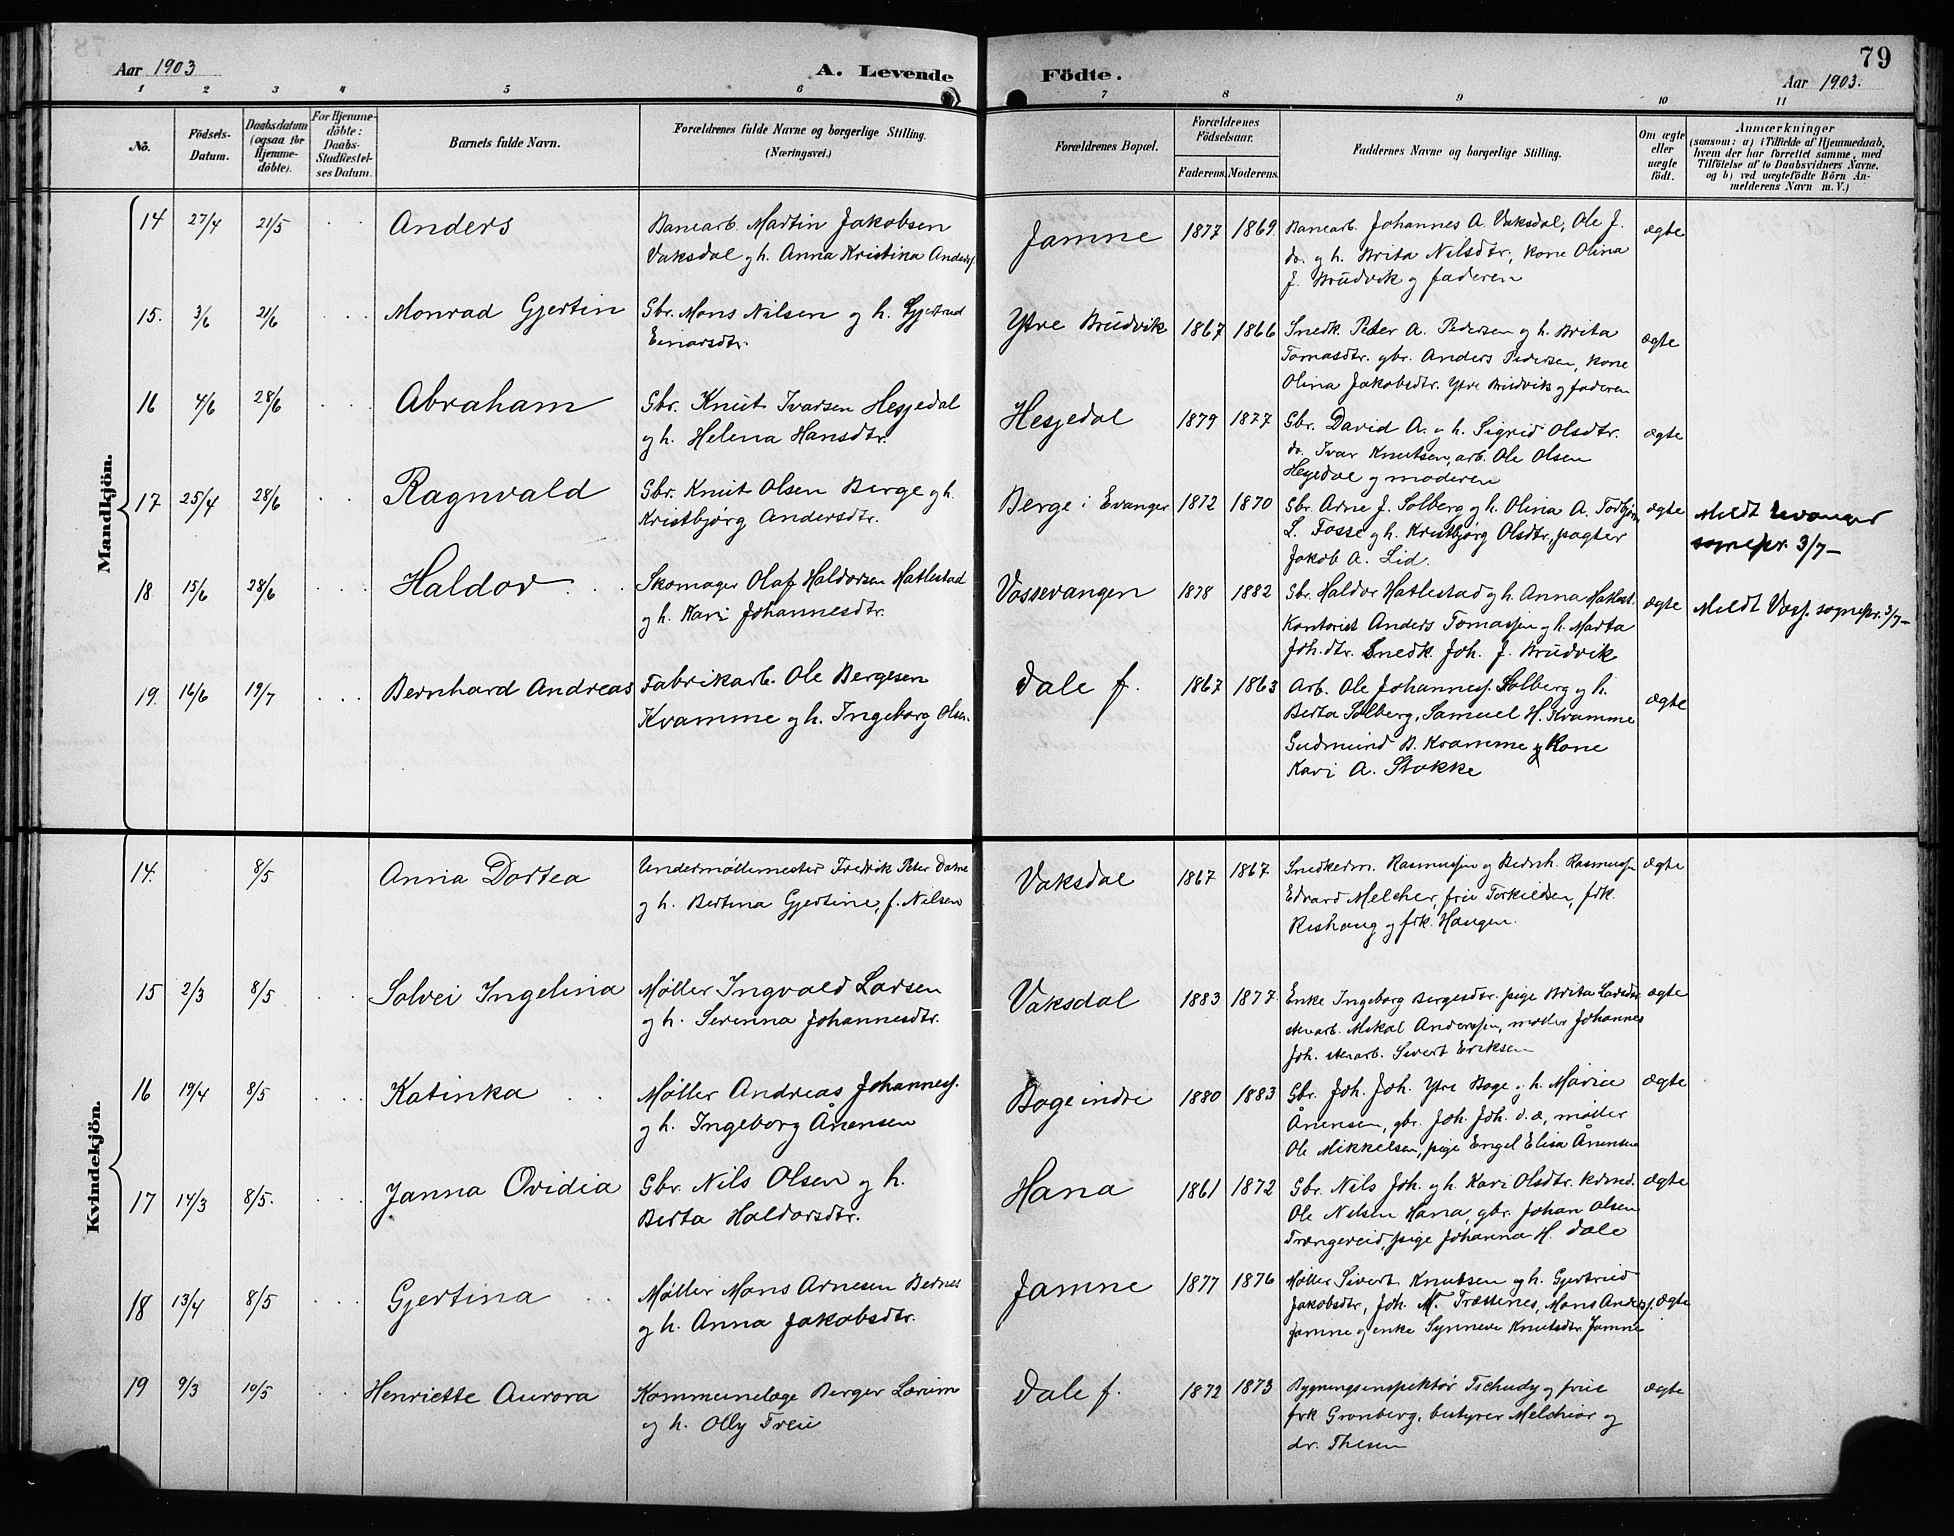 79
Aar 1903
A. Levende Födte.
Aar 1903.
1 2 3 4 5 6 7 8 9 10 11
No.
Födsels-
Datum.
Daabsdatum
(ogsaa for
Hjemme-
döbte).
For Hjemme-
döbte:
Daabs-
Stadfæstel-
ses Datum.
Barnets fulde Navn.
Forældrenes fulde Navne og borgerlige Stilling.
(Næringsvei.)
Forældrenes Bopæl.
Forældrenes
Födselsaar.
Faderens. Moderens.
Faddernes Navne og borgerlige Stilling.
Om ægte
eller
uægte
födt.
Anmærkninger
(saasom: a) i Tilfælde af Hjemmedaab,
hvem der har forrettet samme, med
Tilföielse af to Daabsvidners Navne.
og b) ved uægtefödte Börn An-
melderens Navn m. V.)
Mandkjön.
14 27/4 21/5 Anders
Banearb. Martin Jakobsen
Vaksdal og h. Anna Kristina Andersd.
Jamne 1877 1869
Banearb. Johannes A. Vaksdal, Ole J.
do. og h. Brita Nilsdtr, kone Olina
J. Brudvik og faderen
ægte
15. 3/6 21/6 Monrad Gjertin
Gbr. Mons Nilsen og h. Gjertrud
Einarsdtr.
Ytre Brudvik 1867 1866
Snedk. Peder A. Pedersen og h. Brita
Tomasdtr. gbr. Anders Pedersen, kone
Olina Jakobsdtr. Ytre Brudvik og faderen
ægte
16 4/6 28/6 Abraham
Gbr. Knut Ivarsen Hesjedal
og h. Helena Hansdtr.
Hesjedal 1879 1877
Gbr. David A. og h. Sigrid Olsdtr.
do. Ivar Knutsen, arb. Ole Olsen
Hesjedal og moderen
ægte
17 25/4 28/6 Ragnvald
Gbr. Knut Olsen Berge og h.
Kristbjørg Andersdtr.
Berge i Evanger 1872 1870
Gbr. Arne J. Solberg og h. Olina A. Torbjørn
L. Fosse og h. Kristbjørg Olsdtr, pagter
Jakob A. Lid.
ægte
Meldt Evanger
sognepr. 3/7-
18. 15/6 28/6 Haldor
Skomager Olaf Haldorsen Hatlestad
og h. Kari Johannesdtr.
Vossevangen 1878 1882
Gbr. Haldor Hatlestad og h. Anna Hatlest.
Kontorist Anders Tomassen og h. Marta
Joh.dtr. Snedk. Joh. J. Brudvik
ægte
Meldt Voss. sognepr. 3/7-
19. 16/6 19/7 Bernhard Andreas
Fabrikarb. Ole Bergesen
Kvamme og h. Ingeborg Olsen.
Dale f. 1867 1863
Arb. Ole Johanness. Solberg og h.
Berta Solberg, Samuel H. Kvamme
Gudmund B. Kvamme og Kone
Kari A. Stokke
ægte
Kvindekjön.
14. 8/5 Anna Dortea
Undermøllemester Fredrik Peter
og h. Bertina Gjertine, f. Nilsen
Vaksdal 1867 1867
Snedkerm. Rasmussen og Bernh. Rasmussen
Edvard Melcher, fru Torkildsen, frk.
Rishaug og frk. Haugen.
ægte
15 2/3 8/5 Solvei Ingelina
Møller Ingvald Larsen
og h. Serenna Johannesdtr.
Vaksdal 1883 1877.
Enke Ingeborg Bergesdtr. pige Brita Larsdtr.
stenarb. Mikal Anderssen, møller Johannes
Joh. stenarb. Sivert Eriksen
ægte
16 19/4 8/5 Katinka
Møller Andreas Johanness.
og h. Ingeborg Ånensen
Boge indre 1880 1883
Gbr. Joh. Joh. Ytre Boge og h. Marie
Ånensen, gbr. Joh. Joh. d.æ, møller
Ole Mikkelsen, pige Engel Elisa Ånensen
ægte
17 14/3 8/5. Janna Ovidia
Gbr. Nils Olsen og h.
Berta Haldorsdtr.
Hana 1861 1872
Gbr. Nils Joh. og h. Kari Olsdtr.
Ole Nilsen Hana, gbr. Johan Olsen
Trængereid, pige Johanna H. Dale
ægte
18 13/4 8/5 Gjertina
Møller Mons Arnesen Bernes
og h. Anna Jakobsdtr.
Jamne 1877 1876
Møller Sivert Knutsen og h. Gjertrud
Jakobsdtr, Joh. M. Trættenes, Mons Anders.
Jamne og enke Synneve Knutsdtr. Jamne
ægte
19 9/3 10/5 Henriette Aurora
Kommunelæge Berger Lærum
og h. Olly Treu
Dale f. 1872 1873
Bygningsinspektør Tschudy og frue
frk Gronberg, bestyrer Melchior og
dr. Thesen
ægte